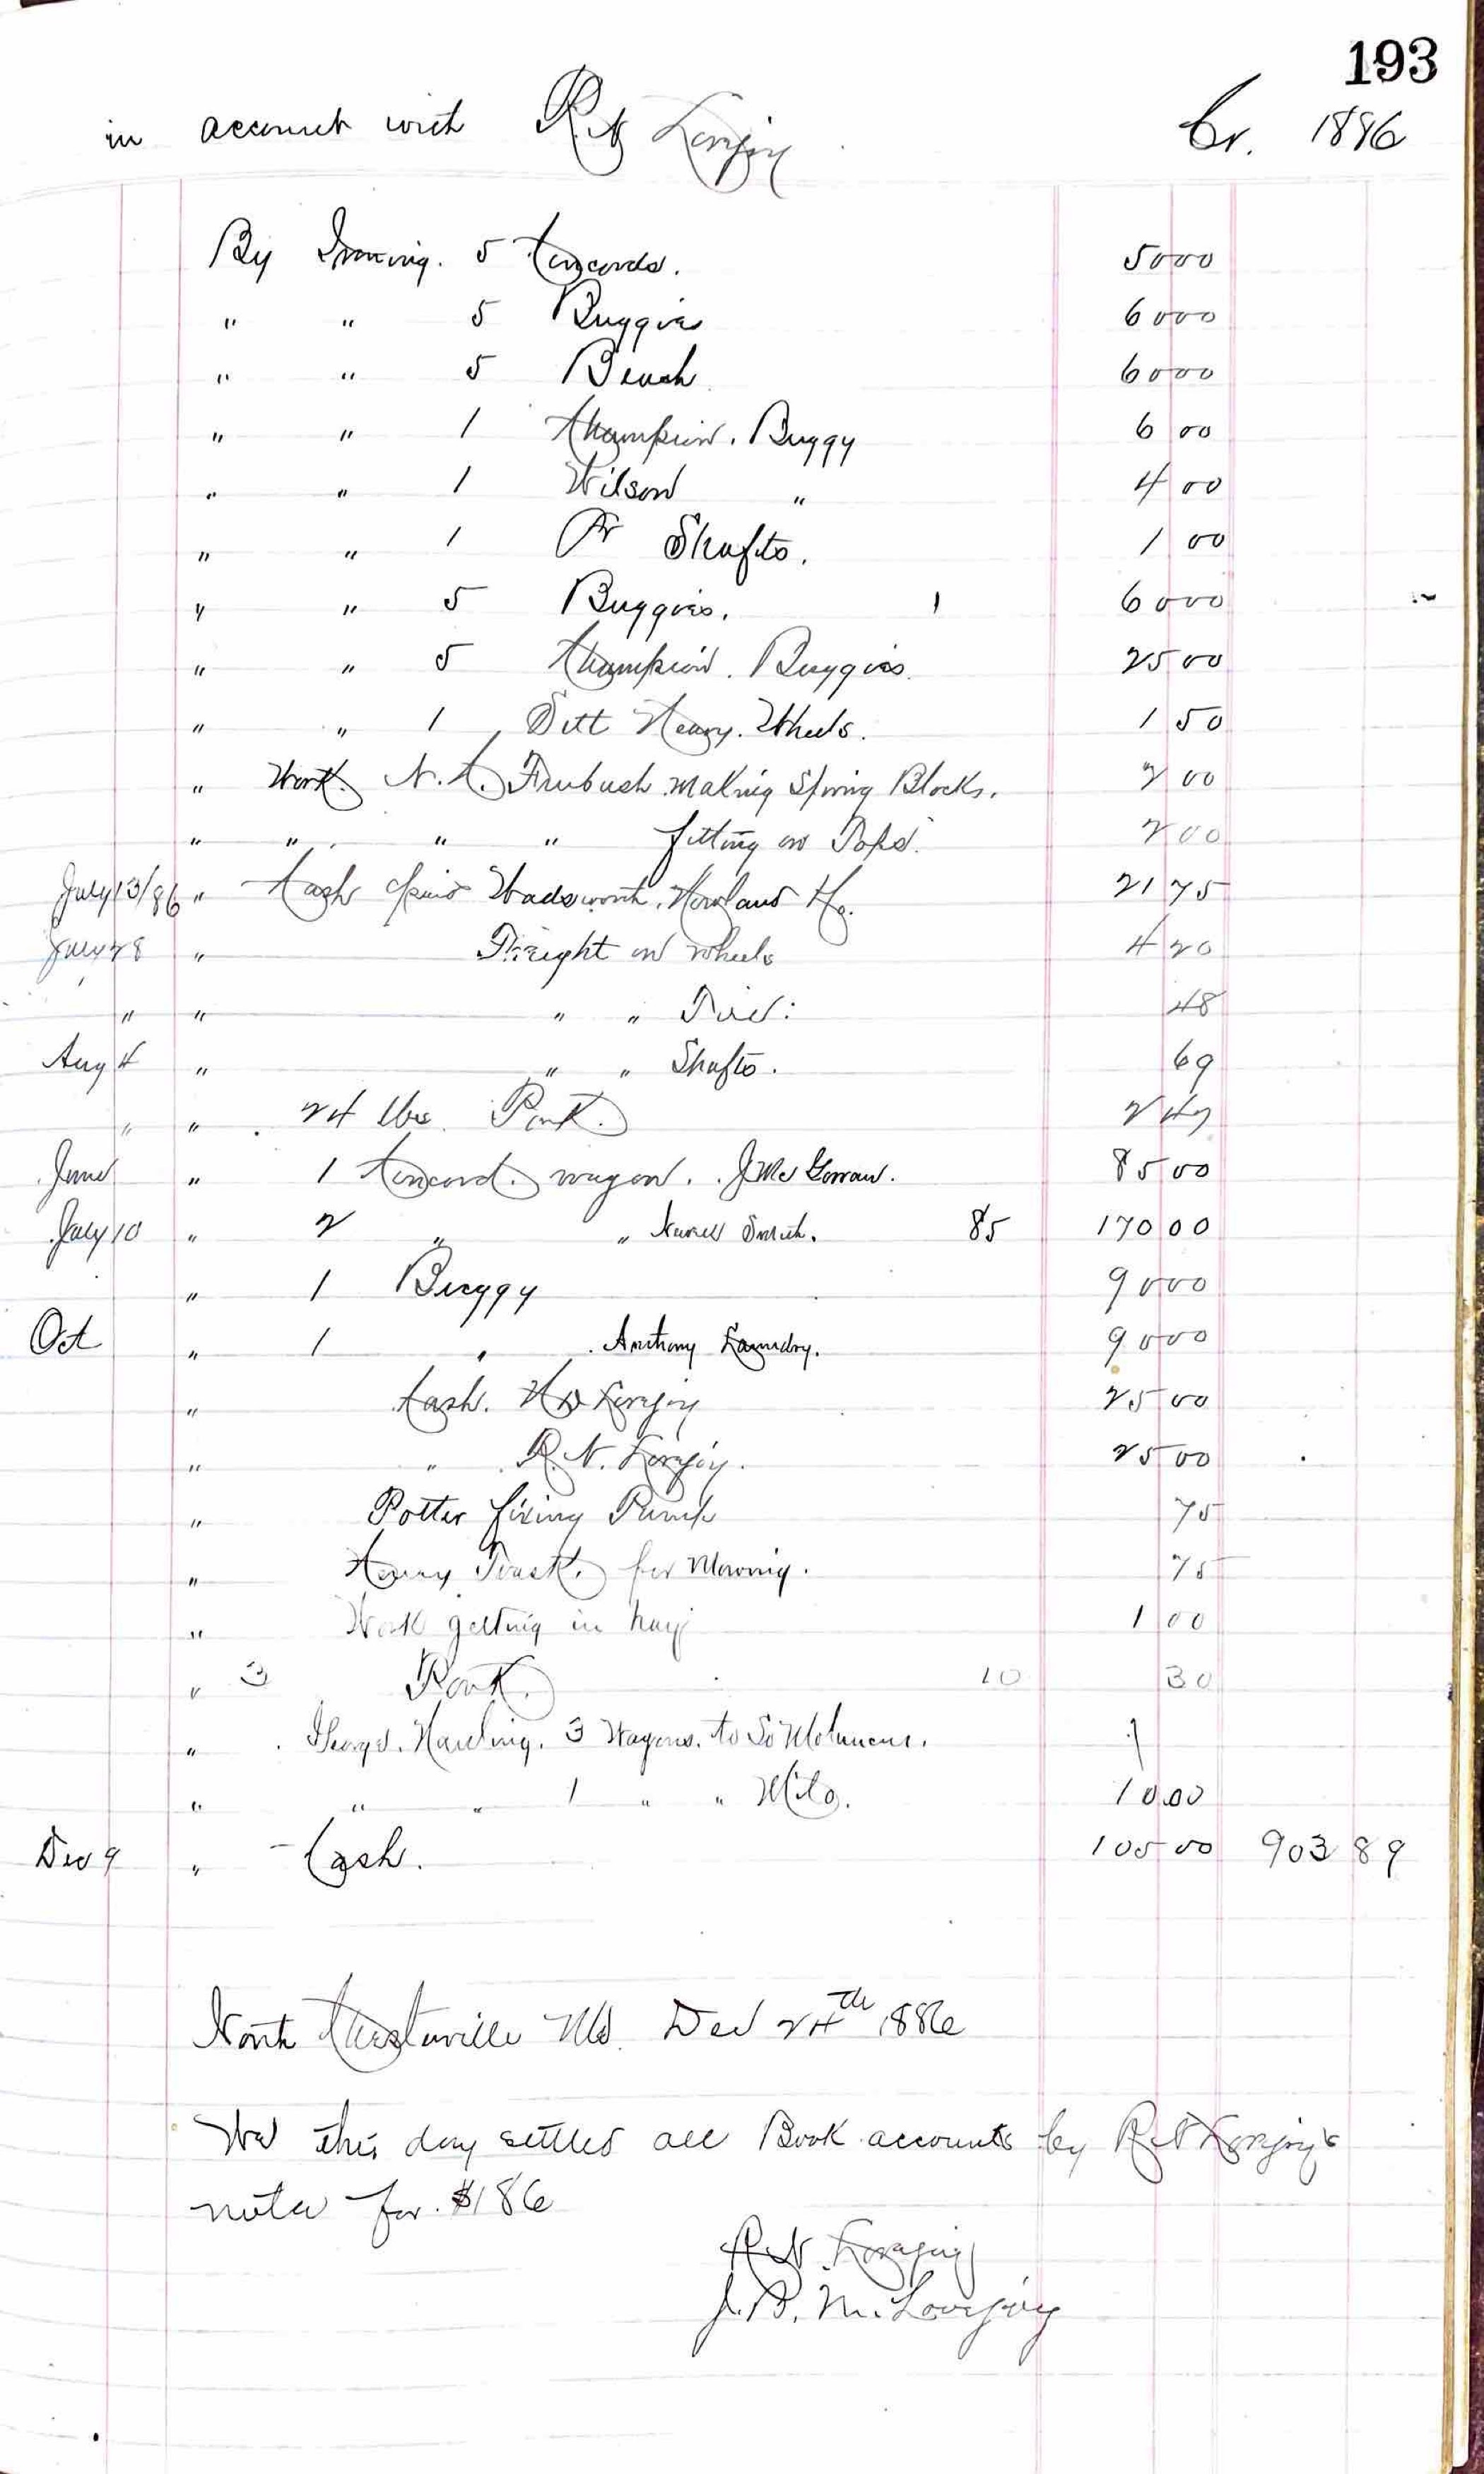 193
in account with R. N Lovejoy Cr. 1886
By Ironing. 5 Concords. 50 00
" " 5 Buggies 60 00
" " 5 Beach 60 00
" " 1 Champion. Buggy 6 00
" " 1 Wilson " 4 00
" " 1 Pr Shafts. 1 00
" " 5 Buggies. 60 00
" " 5 Champion. Buggies 25 00
" " 1 Sett Heavy. Wheels. 1 50
" Work. N. A. Furbush making Spring Blocks. 2 00
" " " " fitting on Tops. 2 00
July 13/86 " Cash paid Wadsworth, Howland 21 75
July 28 " Freight on wheels 4 20
" " " " 48
Aug 4 " " " Shafts. 69
" " 24 lbs. Pork. 2 47
June " 1 Concord. wagon. J Mc Gorraw. 85 00
July 10 " 2 " " Smith. 85 170 00
" 1 Buggy 90 00
Oct " 1 " Anthony Laundry. 90 00
" Cash. Lovejoy 25 00
" " R. N. Lovejoy. 25 00
" Potter fixing Pump 75
" Henry Trask. for Mowing. 75
" Work getting in hay 1 00
" 3 Pork. 10 30
" George. Hauling. 3 Wagons. to So
" " " 1 " " Milo. 10.00
Dec 9 " Cash. 105 00 903 89
North Chesterville Me. Dec 24th 1886
We this day settled all Book accounts by R N Lovejoy's
note for $186
R. N. Lovejoy
J. B. M. Lovejoy